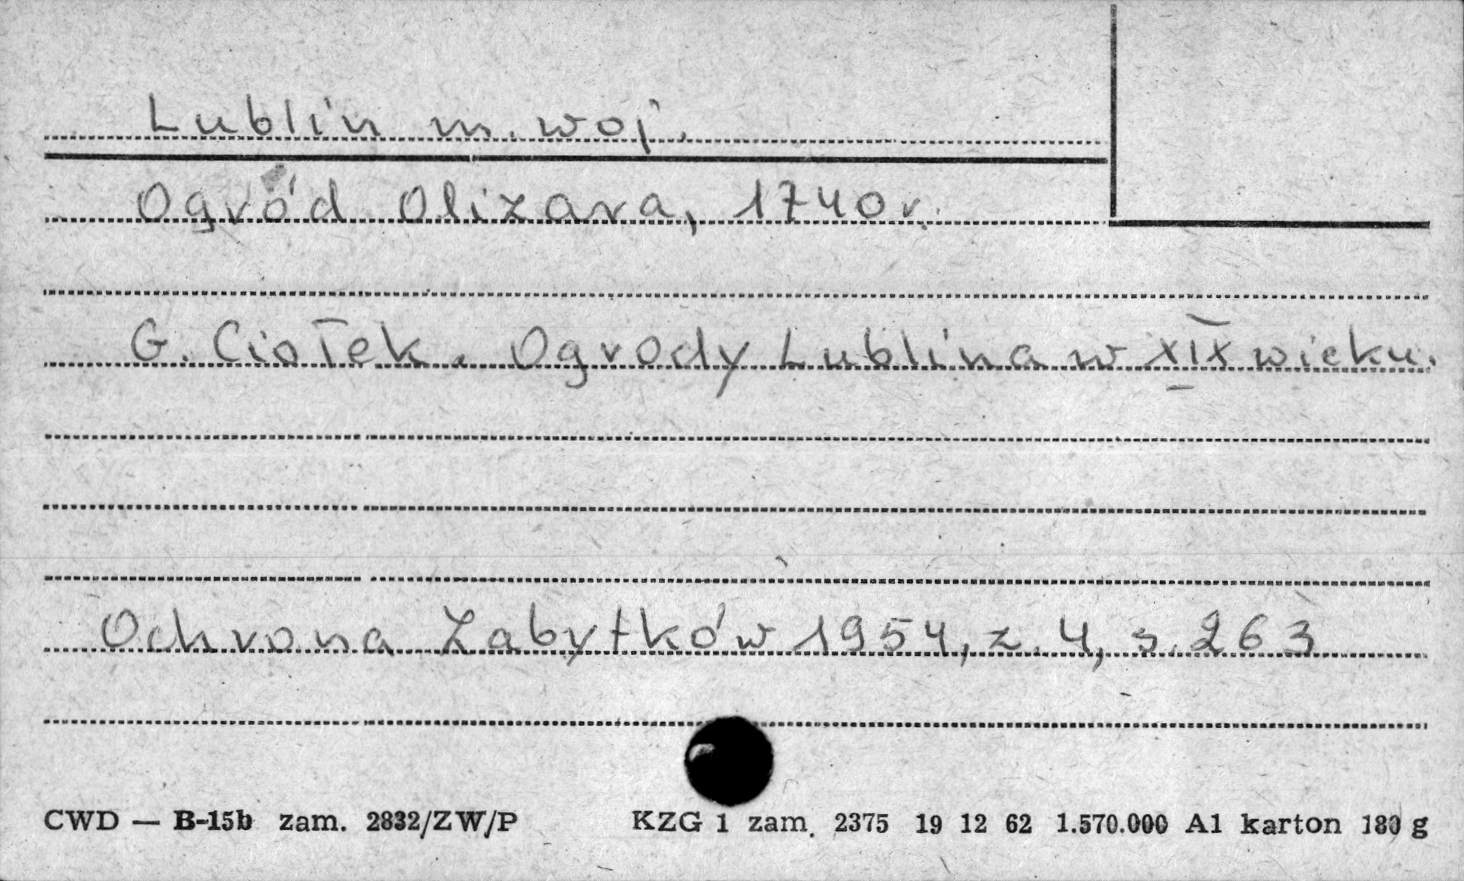 Lublin m. woj.
Ogród Olizara, 1740 r.
G. Ciołek. Ogrody Lublina w XIX wieku.
Ochrona Zabytków 1954, z. 4, s. 263
CWD — B-15b zam. 2832/ZW/P KZG 1 zam. 2375 19 12 62 1.570.000 A1 karton 180 g